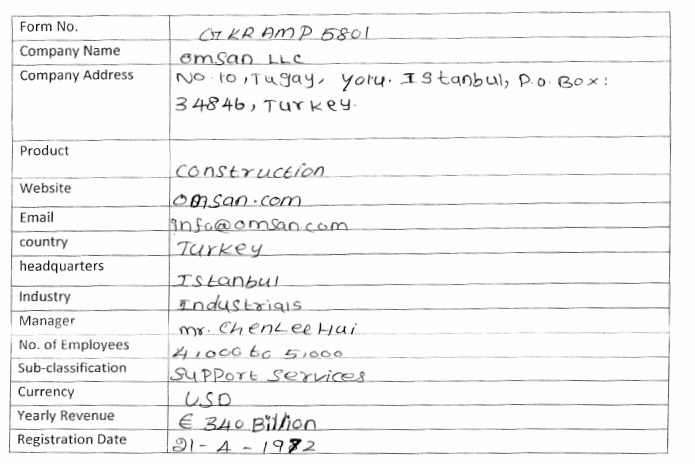 Form No. GKRAMP5801
Company Name omsan LLC
Company Address No.10, Tugay, yolu. Istanbul, P.o. Box:
34846, Turkey.
Product construction
Website omsan.com
Email info@omsan.com
country Turkey
headquarters Istanbul
Industry Industrials
Manager mr. ChenLeeHui
No. of Employees 4,000 to 5,000
Sub-classification Support Services
Currency USD
Yearly Revenue € 340 Billion
Registration Date 21-4-1972